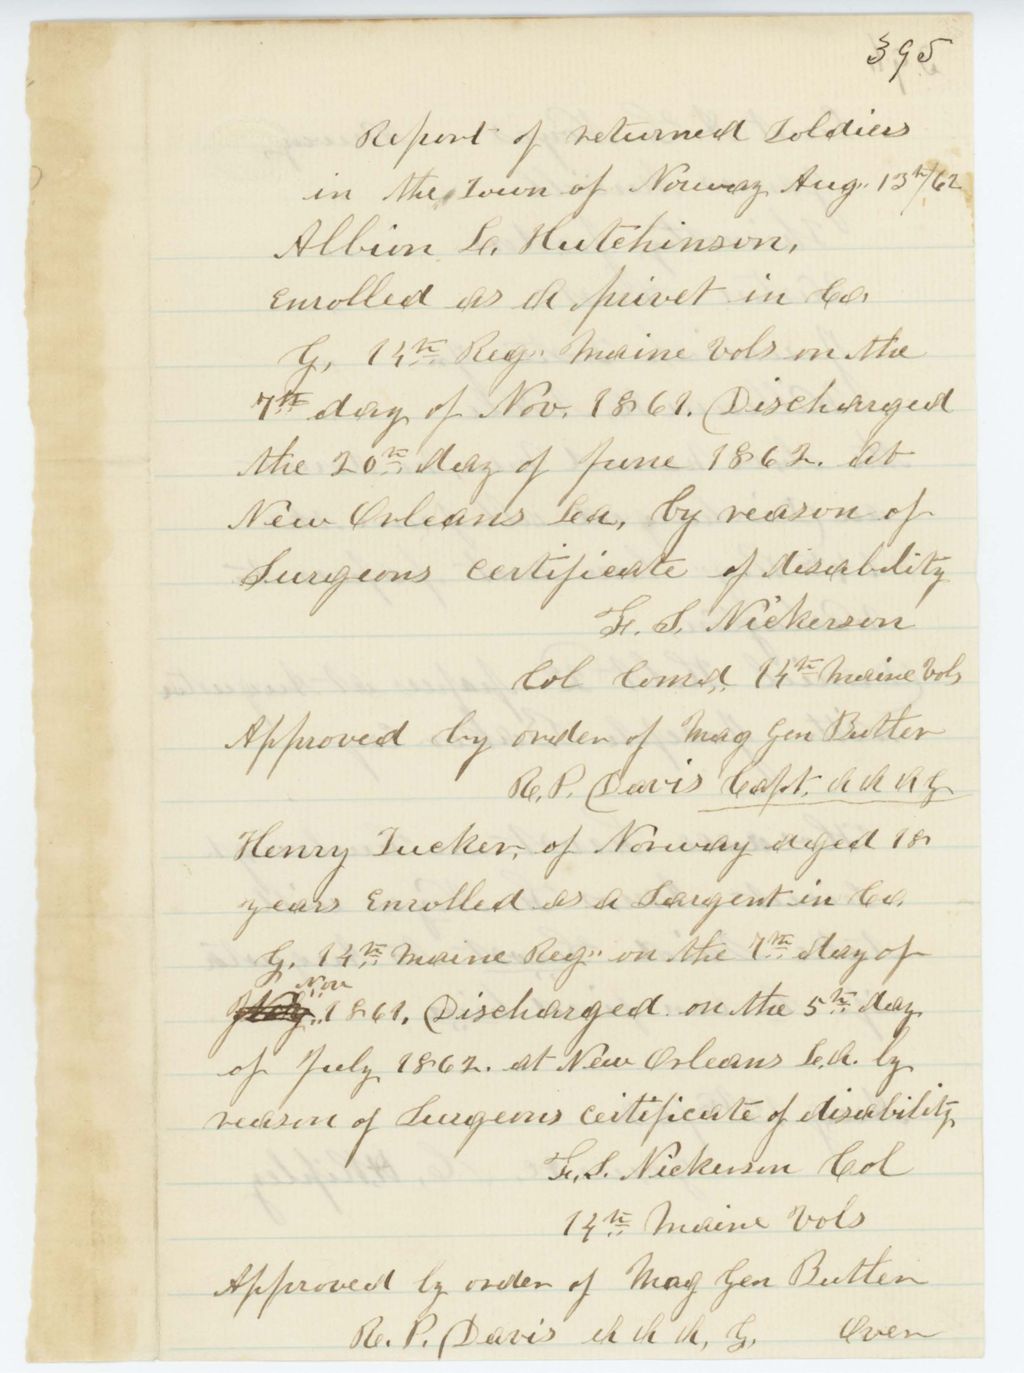 395
Report of returned Soldiers
in the Town of Norway Aug. 13th/62
Albion L. Hutchinson,
Enrolled as a privet in Co.
G, 14th Reg. Maine Vols on the
7th day of Nov. 1861. Discharged
the 20th day of June 1862. at
New Orleans La, by reason of
Surgeons Certificate of disability
F. S. Nickerson
Col Comd, 14th Maine Vols
Approved by order of Mag Gen Butler
R. P. Davis Capt. A A A G
Henry Tucker, of Norway aged 18
years Enrolled as a Sargent in Co.
G. 14th Maine Reg. on the 7th day of
Nov
1861, Discharged on the 5th day
of July 1862. at New Orleans L.A. by
reason of Surgeons Certificate of disability
F. S. Nickerson Col
14th Maine Vols
Approved by order of Mag Gen Butler
R. P. Davis A A A, G. Over